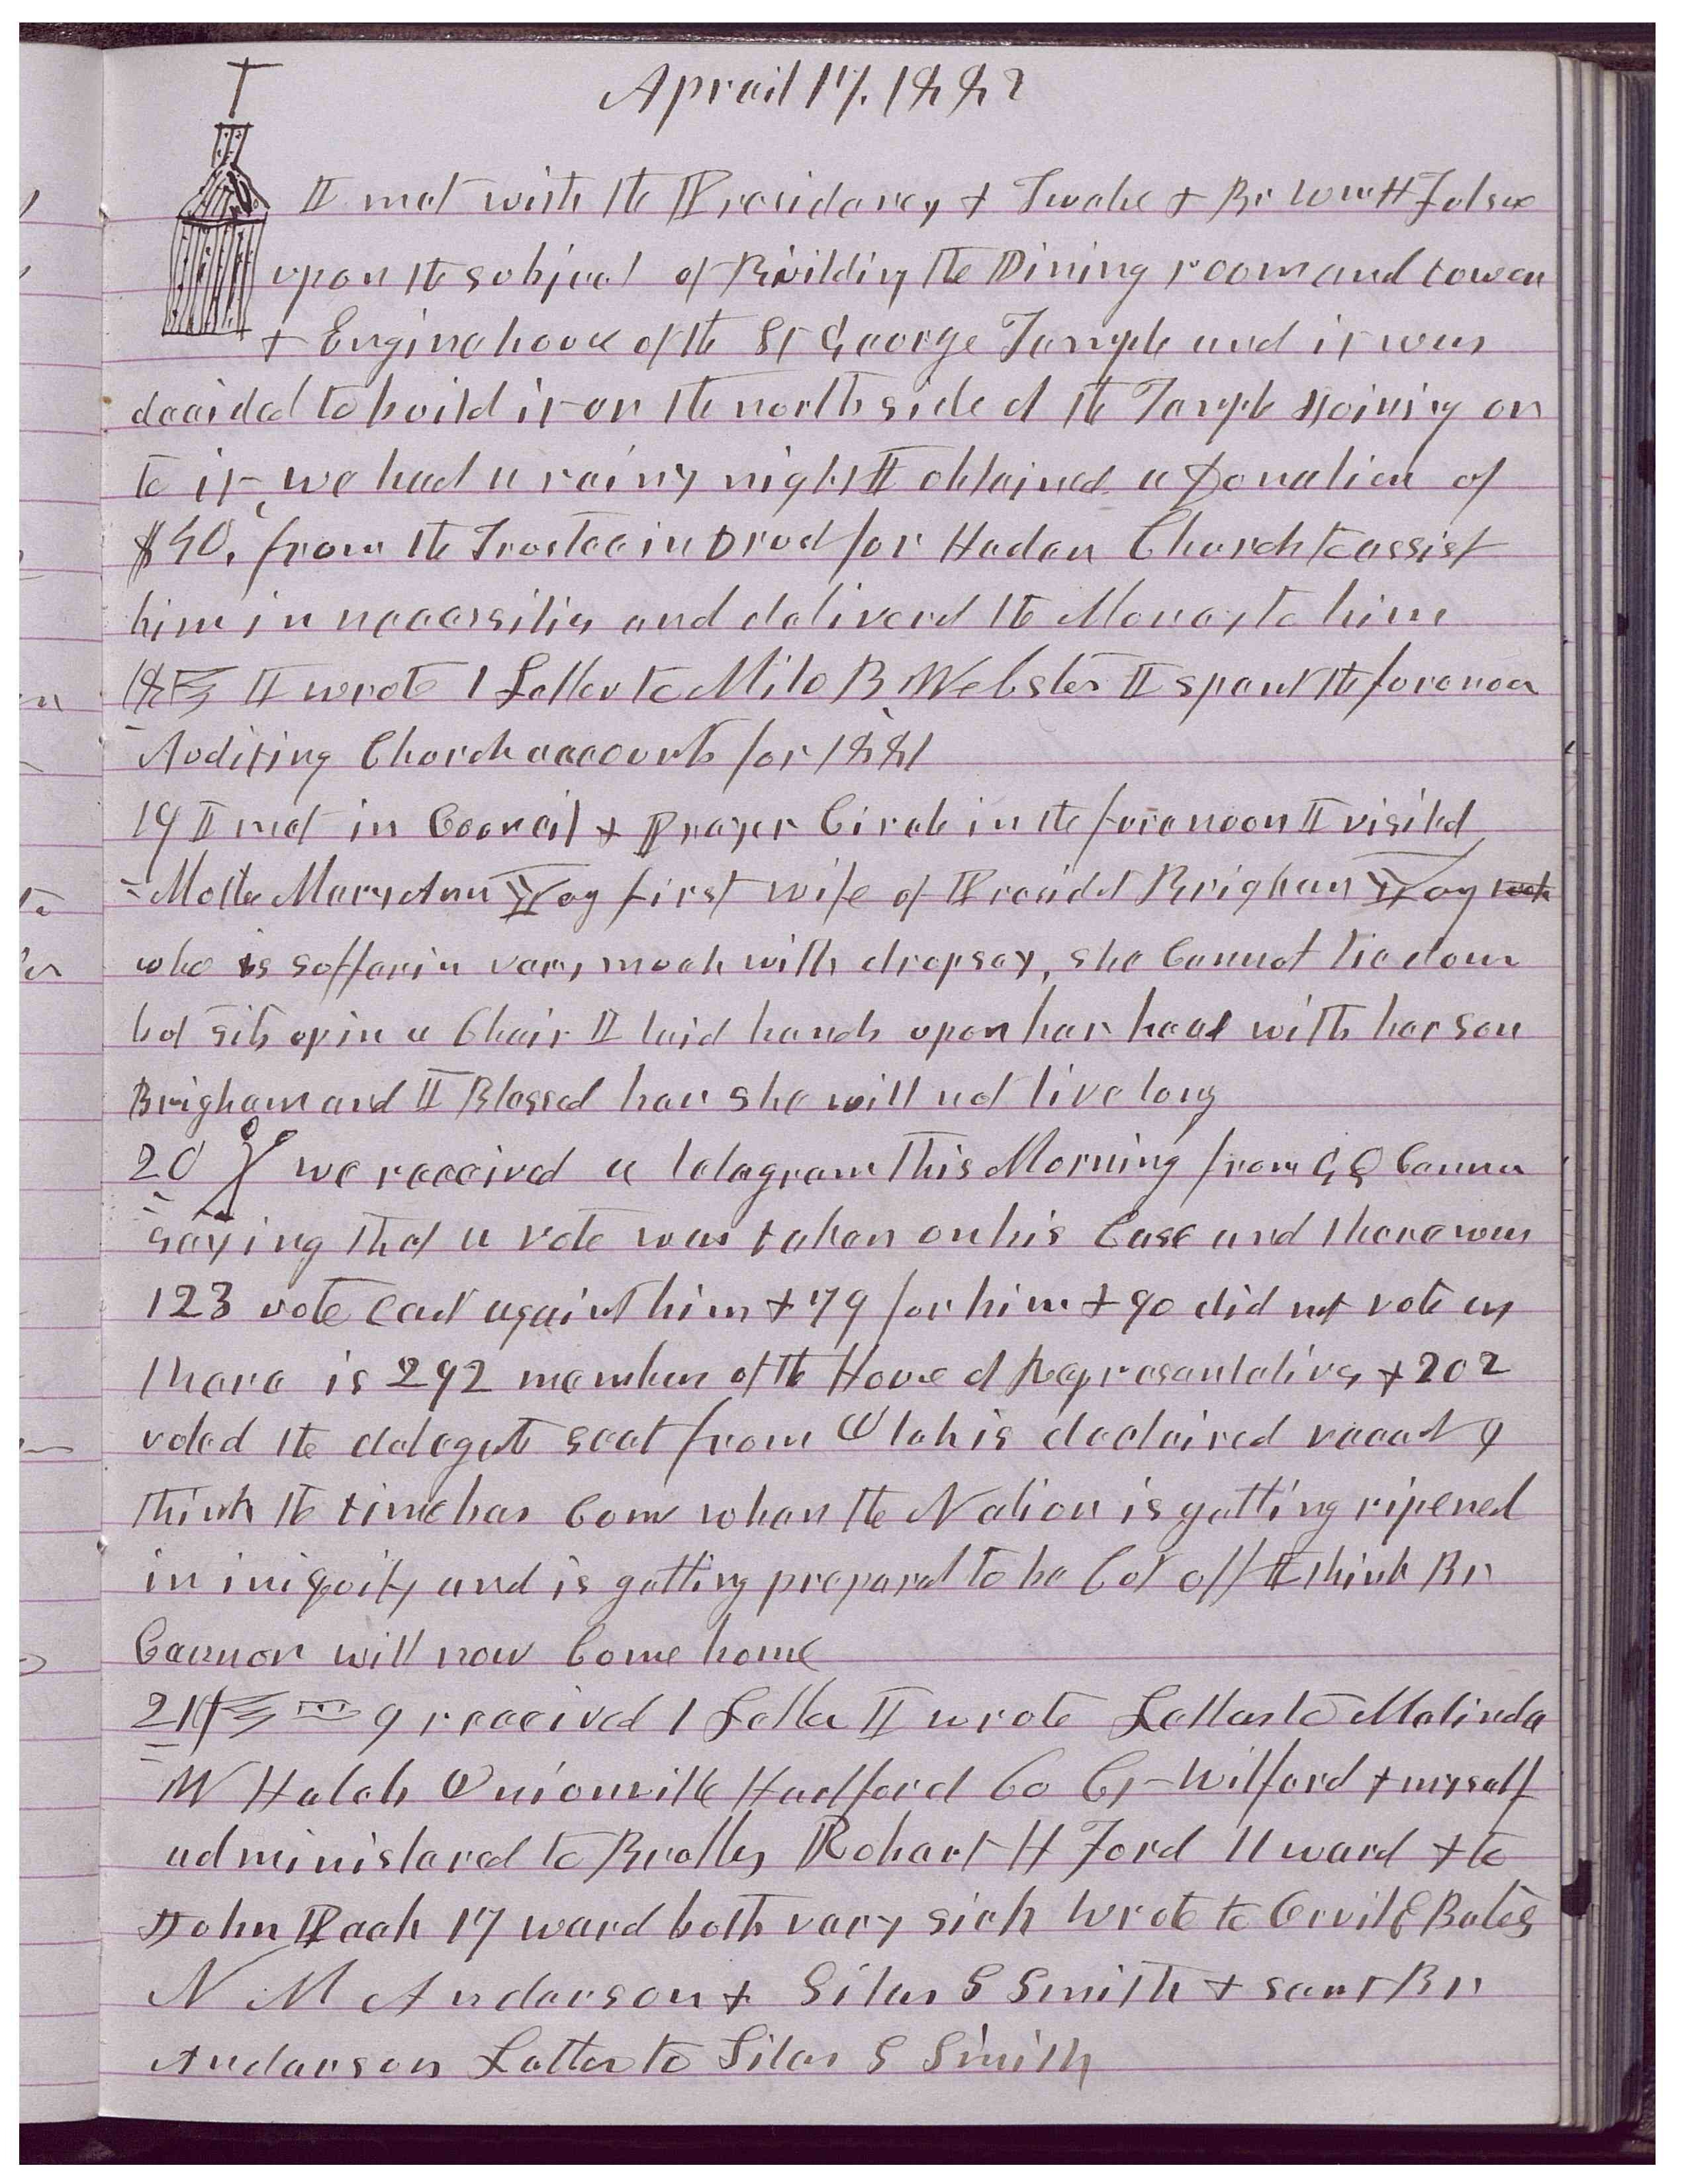 Aprail 17, 1882
I met with the Presidency & Twelve & Br Wm H Folsom
upon the subject of Building the Dining room and tower
& Engine house of the St George Temple and it was
decided to build it on the north side of the Temple Joining on
to it we had a rainy night I obtained a Donation of
$50, from the Trustee in Trust for Haden Church to assist
him in necessities and deliverd the Money to him
18 I wrote 1 Letter to Milo B Webster I spent the forenoon
Auditing Church accounts for 1881
19 I met in Council & Prayer Circle in the forenoon I visited
Mother Mary Ann Young first wife of Presidet Brigham Young
who is sufferin very much with dropsey, she Cannot lie down
but sits up in a Chair I laid hands upon her head with her son
Brigham and I Blessed her she will not live long
20 we received a telegram this Morning from G Q Cannon
saying that a vote was taken on his Case and there was
123 vote cast against him & 79 for him & 90 did not vote as
there is 292 members of the House of Representatives & 202
voted the delegate seat from Utah is declaired vacant I
think the time has Come when the Nation is getting ripened
in iniquity and is getting prepared to be Cut off I think Br
Cannon will now Come home
21 I received 1 Letter I wrote Letters to Malinda
W Hatch Unionville Hadford Co Ct Wilford & myself
administered to Brother Robart H Ford 11 ward & to
John Peack 17 ward both very sick wrote to Orvil E Bates
N M Anderson & Silas S Smith & sent Br
Anderson Letter to Silas S Smith